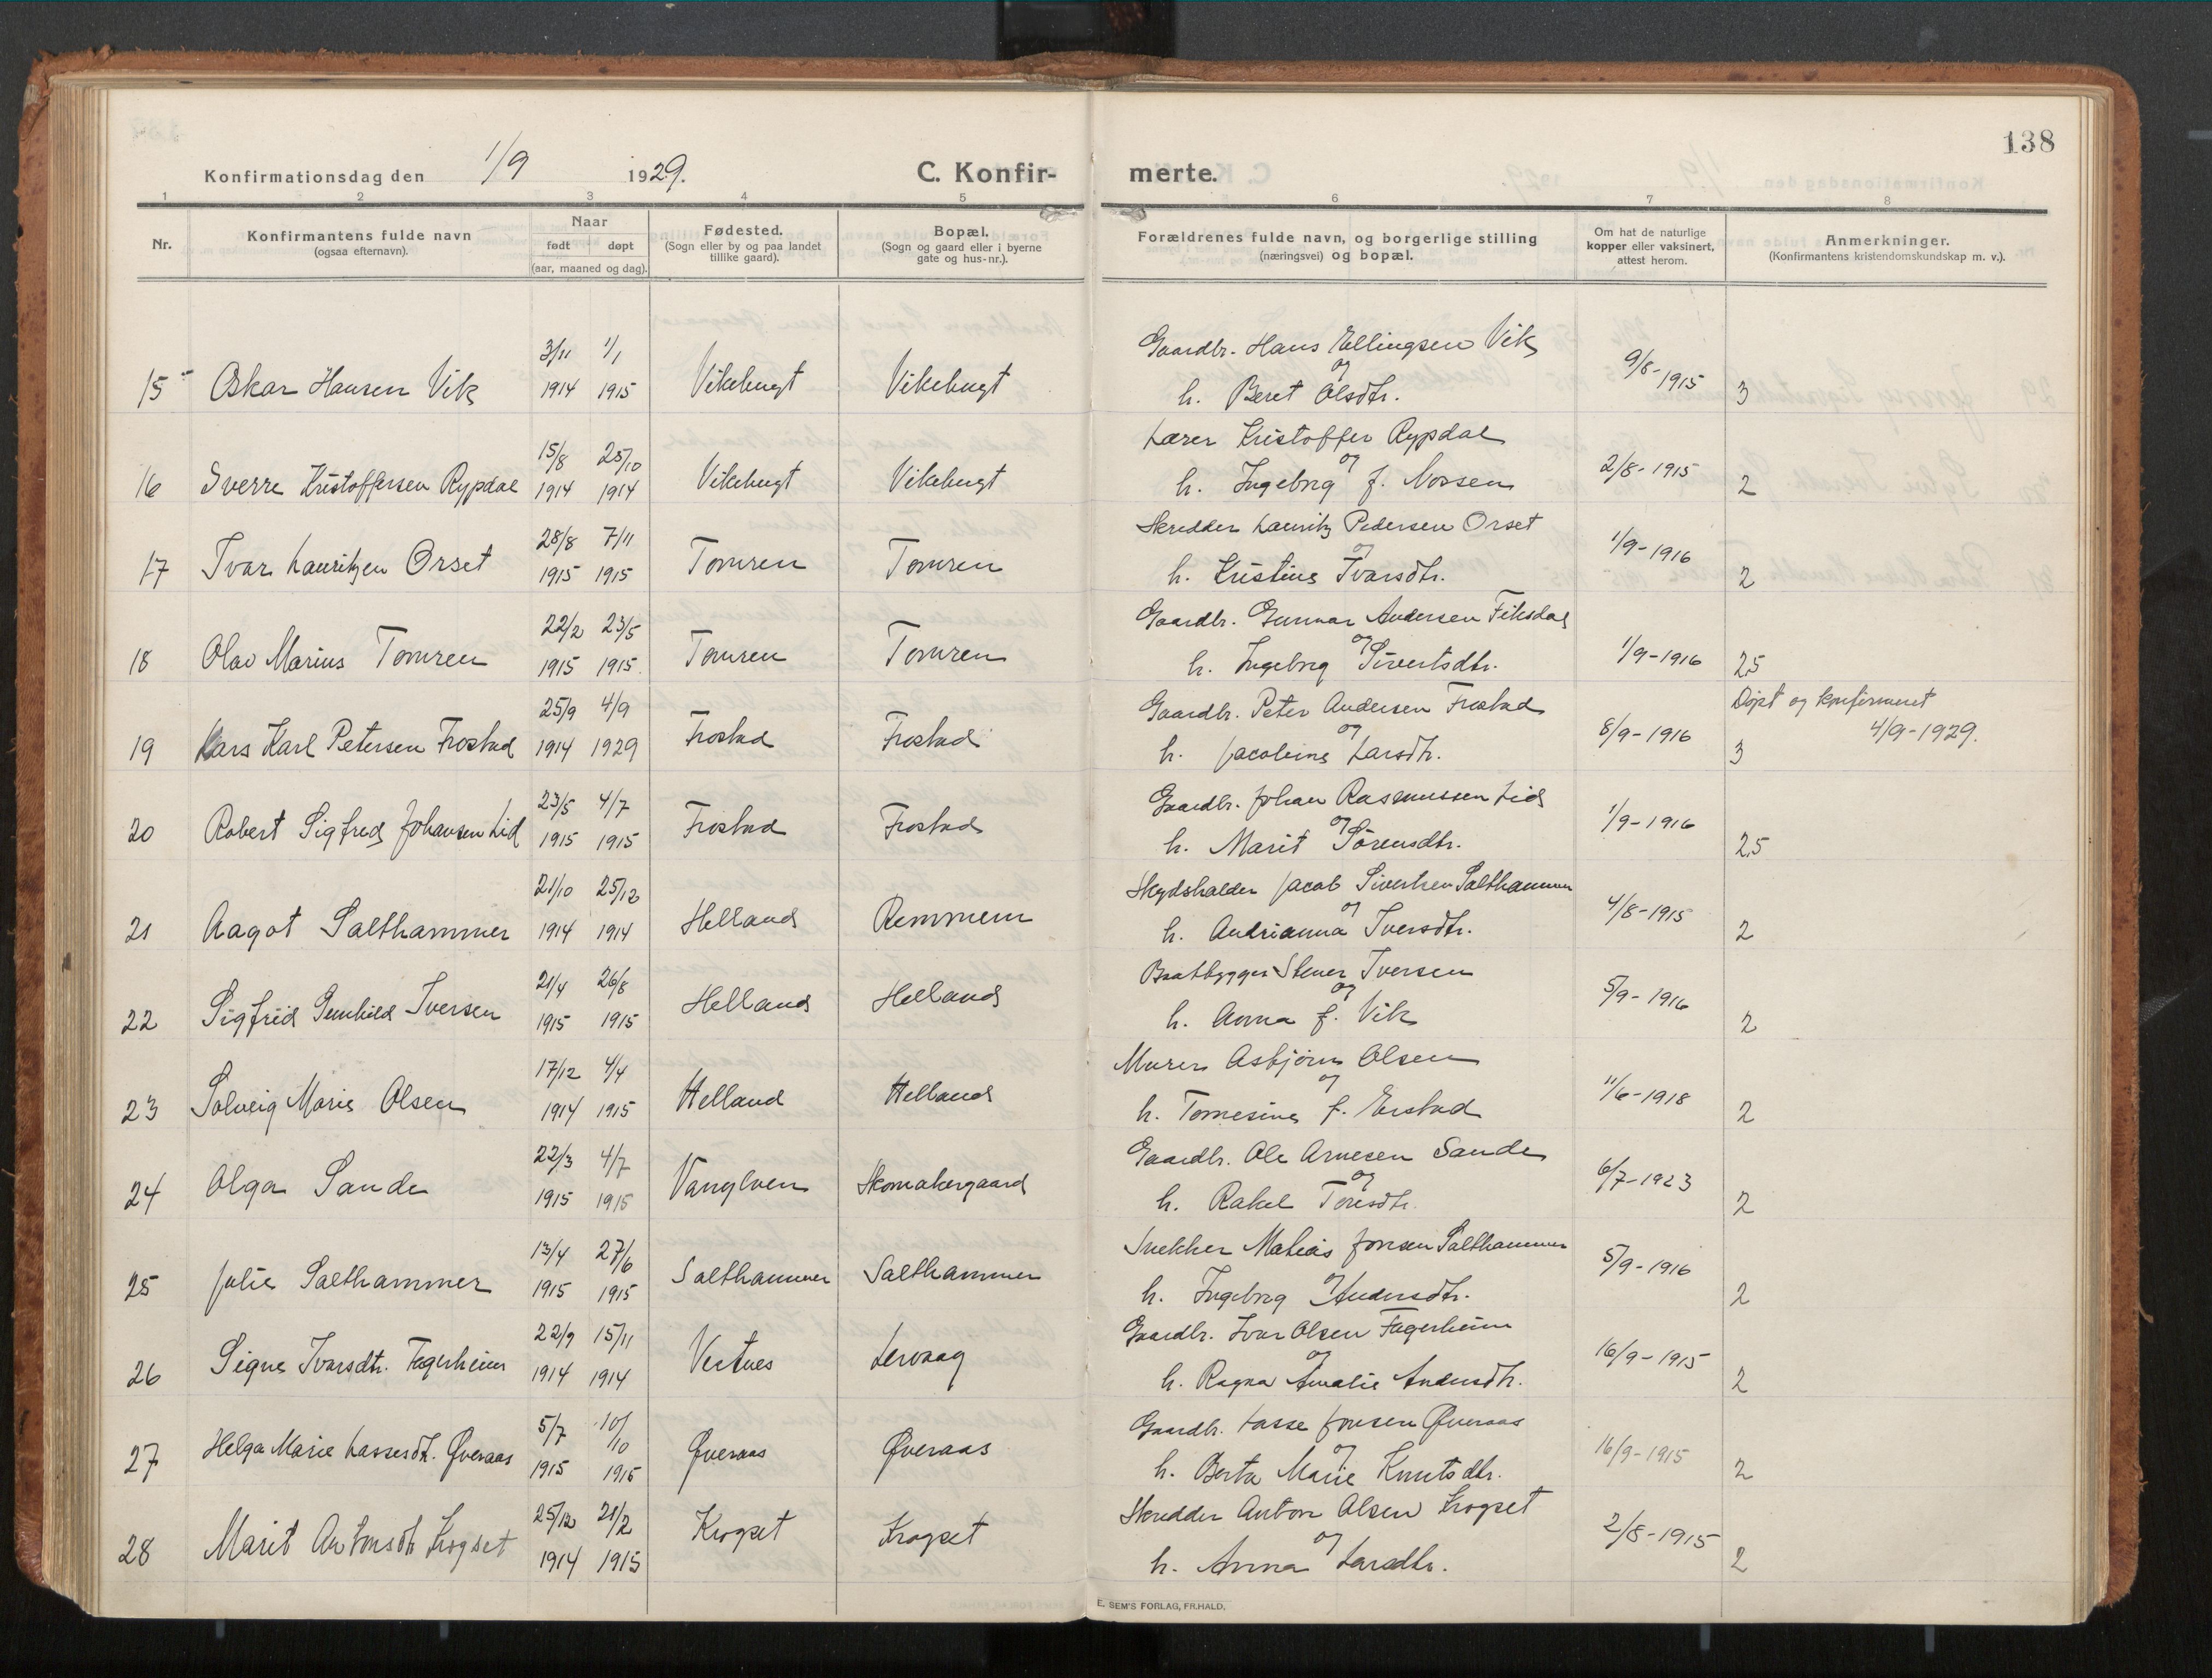 138
Konfirmationsdag den 1/9 1929. C. Konfir- merte.
1 2 3 4 5 6 7 8
Nr.
Konfirmantens fulde navn
(ogsaa efternavn).
Naar
født døpt
(aar, maaned og dag).
Fødested.
(Sogn eller by og paa landet
tillike gaard).
Bopæl.
(Sogn og gaard eller i byerne
gate og hus-nr.).
Forældrenes fulde navn, og borgerlige stilling
(næringsvei) og bopæl.
Om hat de naturlige
kopper eller vaksinert,
attest herom.
Anmerkninger.
(Konfirmantens kristendomskundskap m. v.).
3/11 1/1 Gaardbr. Hans Ellingsen Vik
og
15 Oskar Hansen Vik 1914 1915 Vikebugt Vikebugt h. Beret Olsdtr. 9/8-1915 3
15/8 25/10 Lærer Kristoffer Rypdal
og
16 Sverre Kristoffersen Rypdal 1914 1914 Vikebugt Vikebugt h. Ingebrg f. Nossen 2/8-1915 2
28/8 7/11 Skredder Lauritz Pedersen Orset
og
17 Ivar Lauritzen Orset 1915 1915 Tomren Tomren h. Kristine Ivarsdtr. 1/9-1916 2
22/2 23/5 Gaardbr. Gunnar Andersen Fiksdal
og
18 Olav Marius Tomren 1915 1915 Tomren Tomren h. Ingebrg Sivertsdtr. 1/9-1916 2,5
25/9 4/9 Gaardbr. Peter Andersen Frostad Døpt og konfirmeret
og 4/9-1929.
19 Lars Karl Petersen Frostad 1914 1929 Frostad Frostad h. Jacobine Larsdtr. 8/9-1916 3
23/5 4/7 Gaardbr. Johan Rasmussen Lid
og
20 Robert Sigfred Johansen Lid 1915 1915 Frostad Frostad h. Marit Sørensdtr. 1/9-1916 2,5
21/10 25/12 Skydshalder Jacob Sivertsen Salthammer
og
21 Aagot Salthammer 1914 1914 Helland Remmem h. Andrianna Iversdtr. 4/8-1915 2
21/4 26/8 Baatbygger Stener Iversen
og
22 Sigfrid Gunhild Iversen 1915 1915 Helland Helland h. Anna f. Vik 5/9-1916 2
17/12 4/4 Murer Asbjørn Olsen
og
23 Solveig Marie Olsen 1914 1915 Helland Helland h. Tomesine f. Erstad 11/6-1918 2
22/3 4/7 Gaardbr. Ole Arnesen Sande
og
24 Olga Sande 1915 1915 Vanylven Skomakergaard h. Rakel Toresdtr. 6/7-1923 2
13/4 27/6 Snekker Matias Jonsen Salthammer
og
25 Julie Salthammer 1915 1915 Salthammer Salthammer h. Ingebrg Andersdtr. 5/9-1916 2
22/9 15/11 Gaardbr. Ivar Olsen Fagerheim
og
26 Signe Ivarsdtr. Fagerheim 1914 1914 Vestnes Lervaag h. Ragna Amalie Andersdtr. 16/9-1915 2
5/7 10/10 Gaardbr. Lasse Jonsen Øveraas
og
27 Helga Marie Lassesdtr. Øveraas 1915 1915 Øveraas Øveraas h. Berta Marie Knutsdtr. 16/9-1915 2
25/12 21/2 Skredder Anton Olsen Krogset
og
28 Marit Antonsdtr Krogset 1914 1915 Krogset Krogset h. Anna Larsdtr. 2/8-1915 2
E. SEM'S FORLAG, FR.HALD.